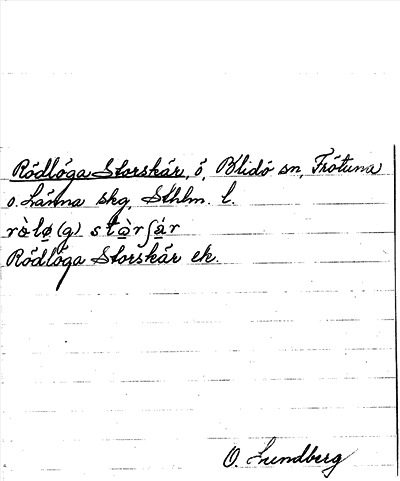 Rödlöga Storskär, ö, Blidö sn, Frötuna
o. Länna skg, Sthlm. l.
rö̀lø̱(g) stò̱rʃä̱r
Rödlöga Storskär ek.
O. Lundberg